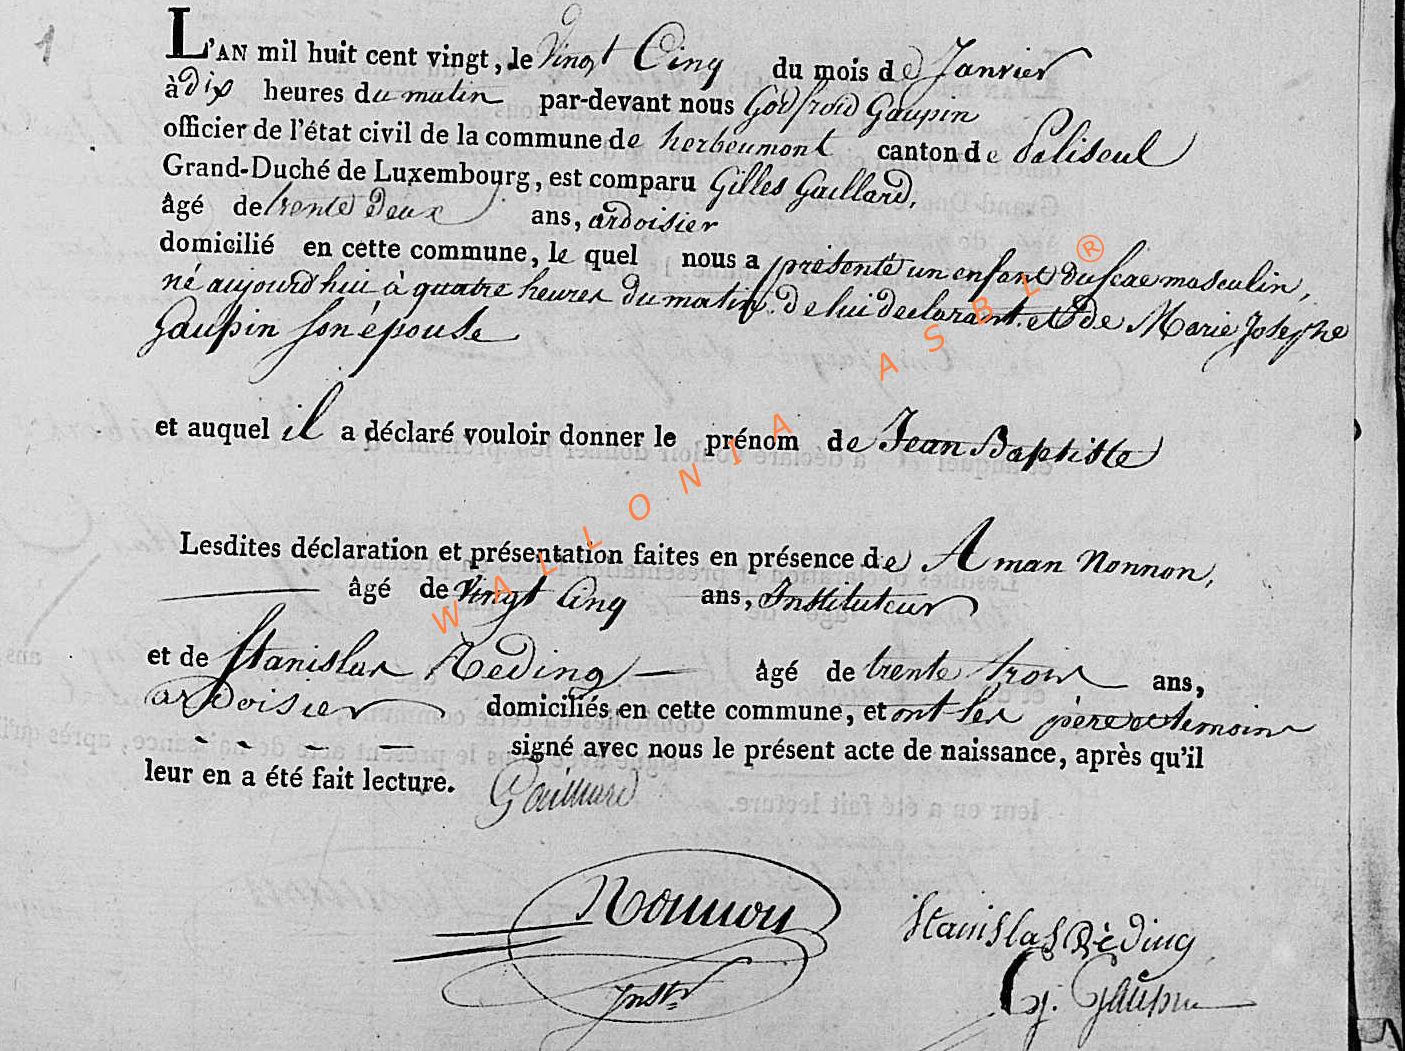 1
L'AN mil huit cent vingt, le Vingt Cinq du mois de Janvier
à dix heures du matin par-devant nous Godfroid Gaupin
officier de l'état civil de la commune de herbeumont canton de Paliseul
Grand-Duché de Luxembourg, est comparu Gilles Gaillard,
âgé de trente deux ans, ardoisier
domicilié en cette commune, le quel nous a présenté un enfant du sexe masculin,
né aujourd'hui à quatre heures du matin de lui déclarant et de Marie Josephe
Gaupin son épouse
et auquel il a déclaré vouloir donner le prénom de Jean Baptiste
Lesdites déclaration et présentation faites en présence de Aman Nonnon,
âgé de Vingt Cinq ans, Instituteur
et de Stanislas Reding âgé de trente trois ans,
ardoisier domiciliés en cette commune, et ont les père et temoins
signé avec nous le présent acte de naissance, après qu'il
leur en a été fait lecture. Gaillard
Nonnon
Instr
Stanislas Rèding
G. Gaupin
WALLONIA ASBL ®